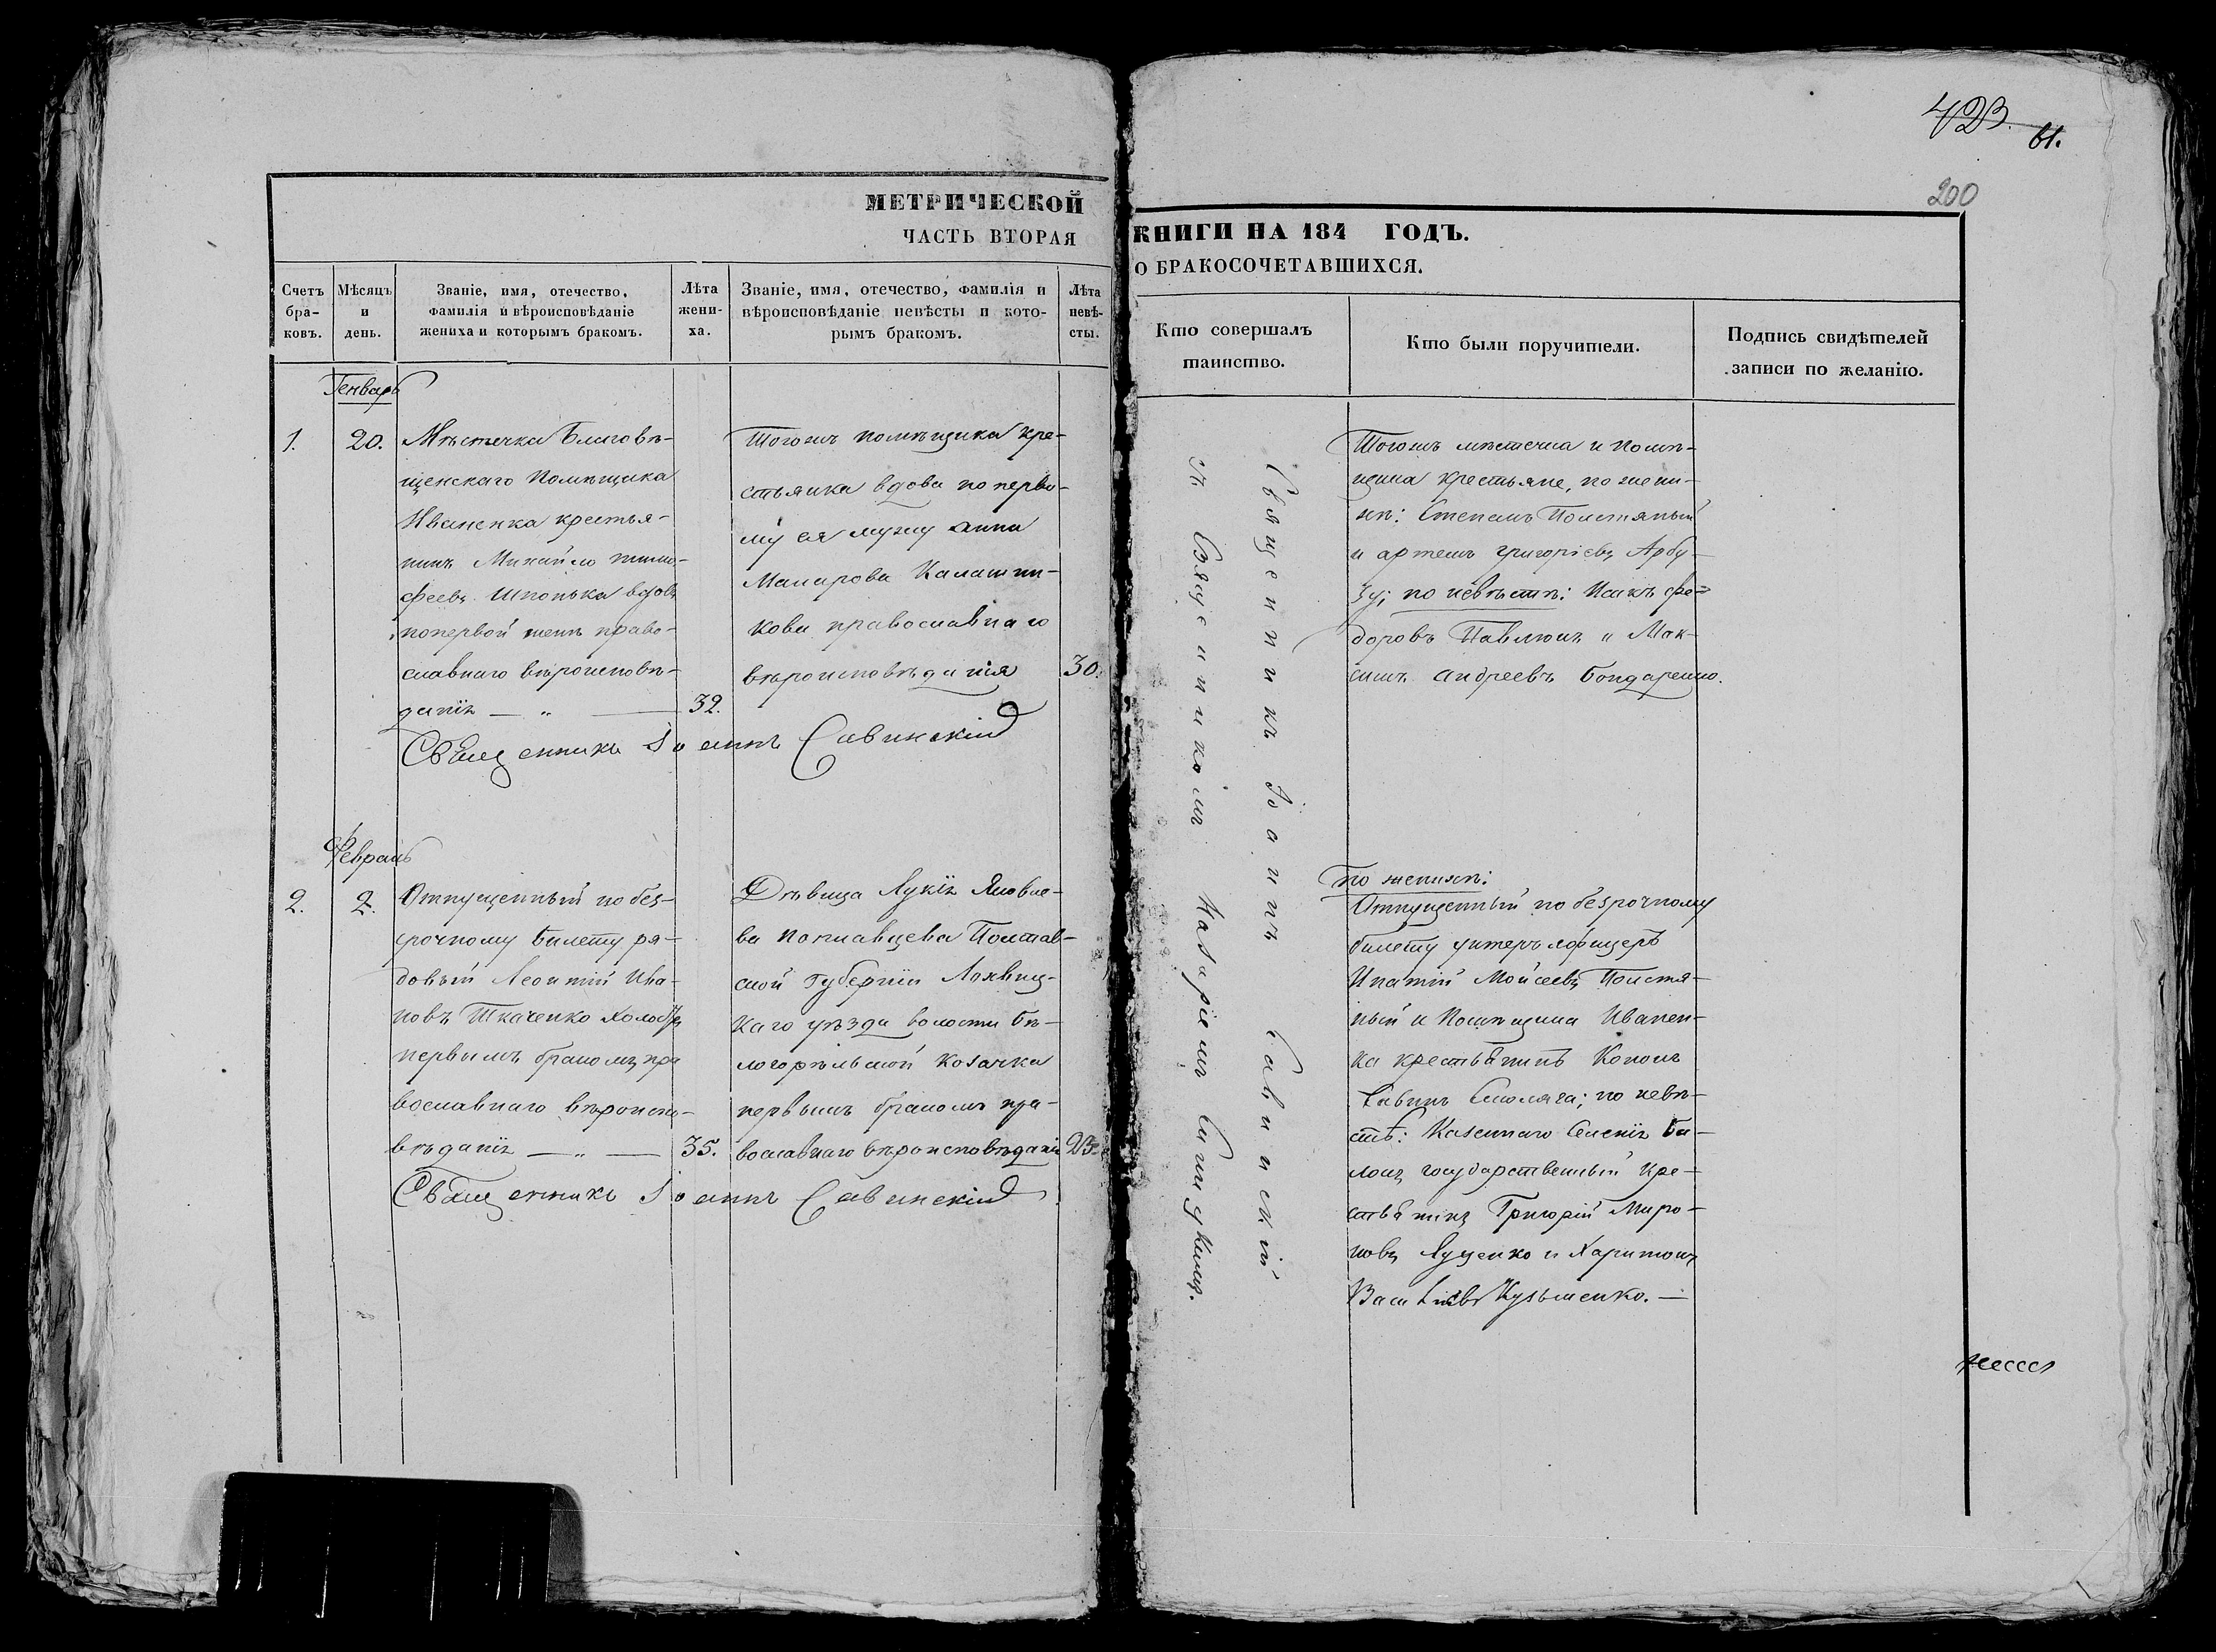 423. 61.
200
МЕТРИЧЕСКОЙ
ЧАСТЬ ВТОРАЯ
КНИГИ НА 184 ГОДЪ.
О БРАКОСОЧЕТАВШИХСЯ.
Счетъ
бра-
ковъ.
Мѣсяцъ
и
день.
Званіе, имя, отечество,
фамилія и вѣроисповѣданіе
жениха и которымъ бракомъ.
Лѣта
жени-
ха.
Званіе, имя, отечество, фамилія и
вѣроисповѣданіе невѣсты и кото-
рымъ бракомъ.
Лѣта
невѣ-
сты.
Кто совершалъ
таинство.
Кто были поручители.
Подпись свидѣтелей
записи по желанію.
Генварь
1.
20.
Мѣстечка Благовѣ-
щенскаго Помѣщика
Иваненка крестья-
нинъ Михайло тимо-
феевъ Шпонька вдовъ
попервой женѣ право-
славнаго вѣроисповѣ-
данія — „ —
32.
Тогожъ помѣщика кре-
стьянка вдова по перво-
му ея мужу анна
Макарова Калашни-
кова православнаго
вѣроисповѣданія
30.
Священникъ Іоаннъ Савинскій
Священникъ Іоаннъ Савинскій
съ Дьячкомъ Назаріемъ
Тогожъ мѣстечка и помѣ-
щика крестьяне, по жени-
хѣ: Степанъ Полстяный
и артемъ григоріевъ Арбу-
зу; по невѣстѣ: Исакъ фе-
доровъ Павлюкъ и Мак-
симъ андреевъ Бондаренко.
Февраль
2.
2.
Отпущенный по без-
срочному билету ря-
довый Леонтій Ива-
новъ Ткаченко холостъ
первымъ бракомъ пра
вославнаго вѣроиспо-
вѣданія — „ —
35.
Дѣвица Лукія Яковле-
ва Полтав-
ской Губерніи Лохвиц-
каго уѣзда волости Бѣ-
логорѣльской козачка
первымъ бракомъ пра-
вославнаго вѣроисповѣданія
23.
Священникъ Іоаннъ Савинскій
По женихѣ:
Отпущенный по безрочному
билету унтеръ офицеръ
Ипатій Мойсеевъ Полстя-
ный и Помѣщика Иванен-
ка крестьянинъ Кононъ
Савинъ Смоляга; по невѣ-
стѣ: Казеннаго Селенія Ба-
государственный кре-
стьянинъ Григорій Миро-
новъ Луценко и Харитонъ
Васильевъ Кузьменко. —